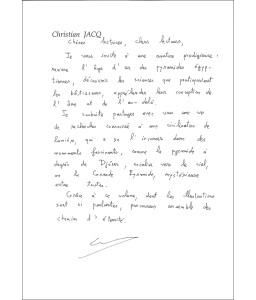 Christian JACQ
Chères lectrices, chers lecteurs,
Je vous invite à une aventure prodigieuse :
revivre l'âge d'or des pyramides égyp-
tiennes, découvrir les sciences que pratiquaient
les bâtisseurs, appréhender leur conception de
l'âme et de l'au-delà.
Je souhaite partager avec vous une vie
de recherches consacrée à une civilisation de
lumière, qui a su l'incarner dans des
monuments fascinants, comme la pyramide à
degrés de Djéser, escalier vers le ciel,
ou la Grande Pyramide, mystérieuse
entre toutes.
Grâce à ce volume, dont les illustrations
sont si parlantes, parcourons ensemble des
chemins d'éternité.